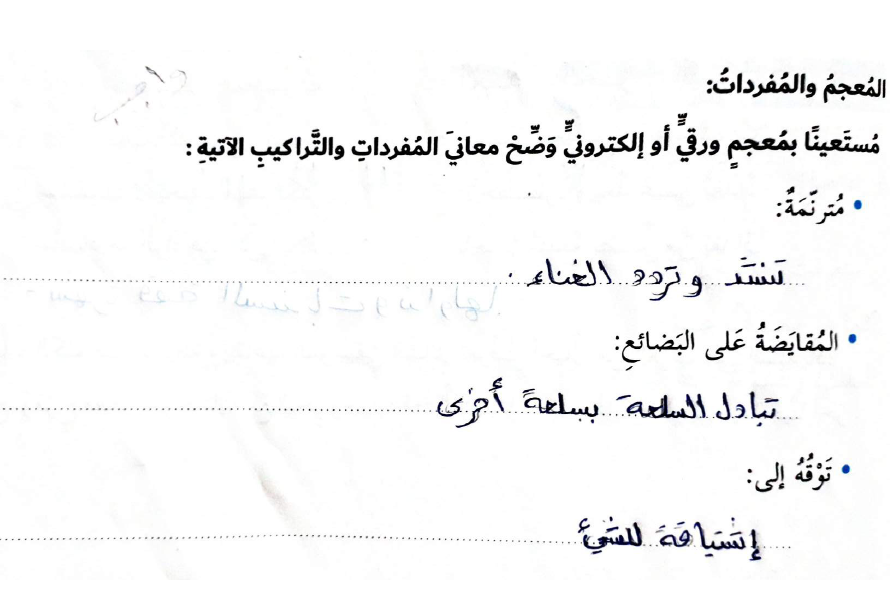 المُعجمُ والمُفرداتُ:
مُستَعينًا بمُعجمٍ ورقيٍّ أو إلكترونيٍّ وَضِّحْ معانيَ المُفرداتِ والتَّراكيبِ الآتيةِ:
• مُترنّمَةٌ:
تنشد وتردد الغناء.
• المُقايَضَةُ عَلى البَضائعِ:
تبادل السلعة بسلعة أخرى
• تَوْقُهُ إلى:
إشتياقة للشيئ